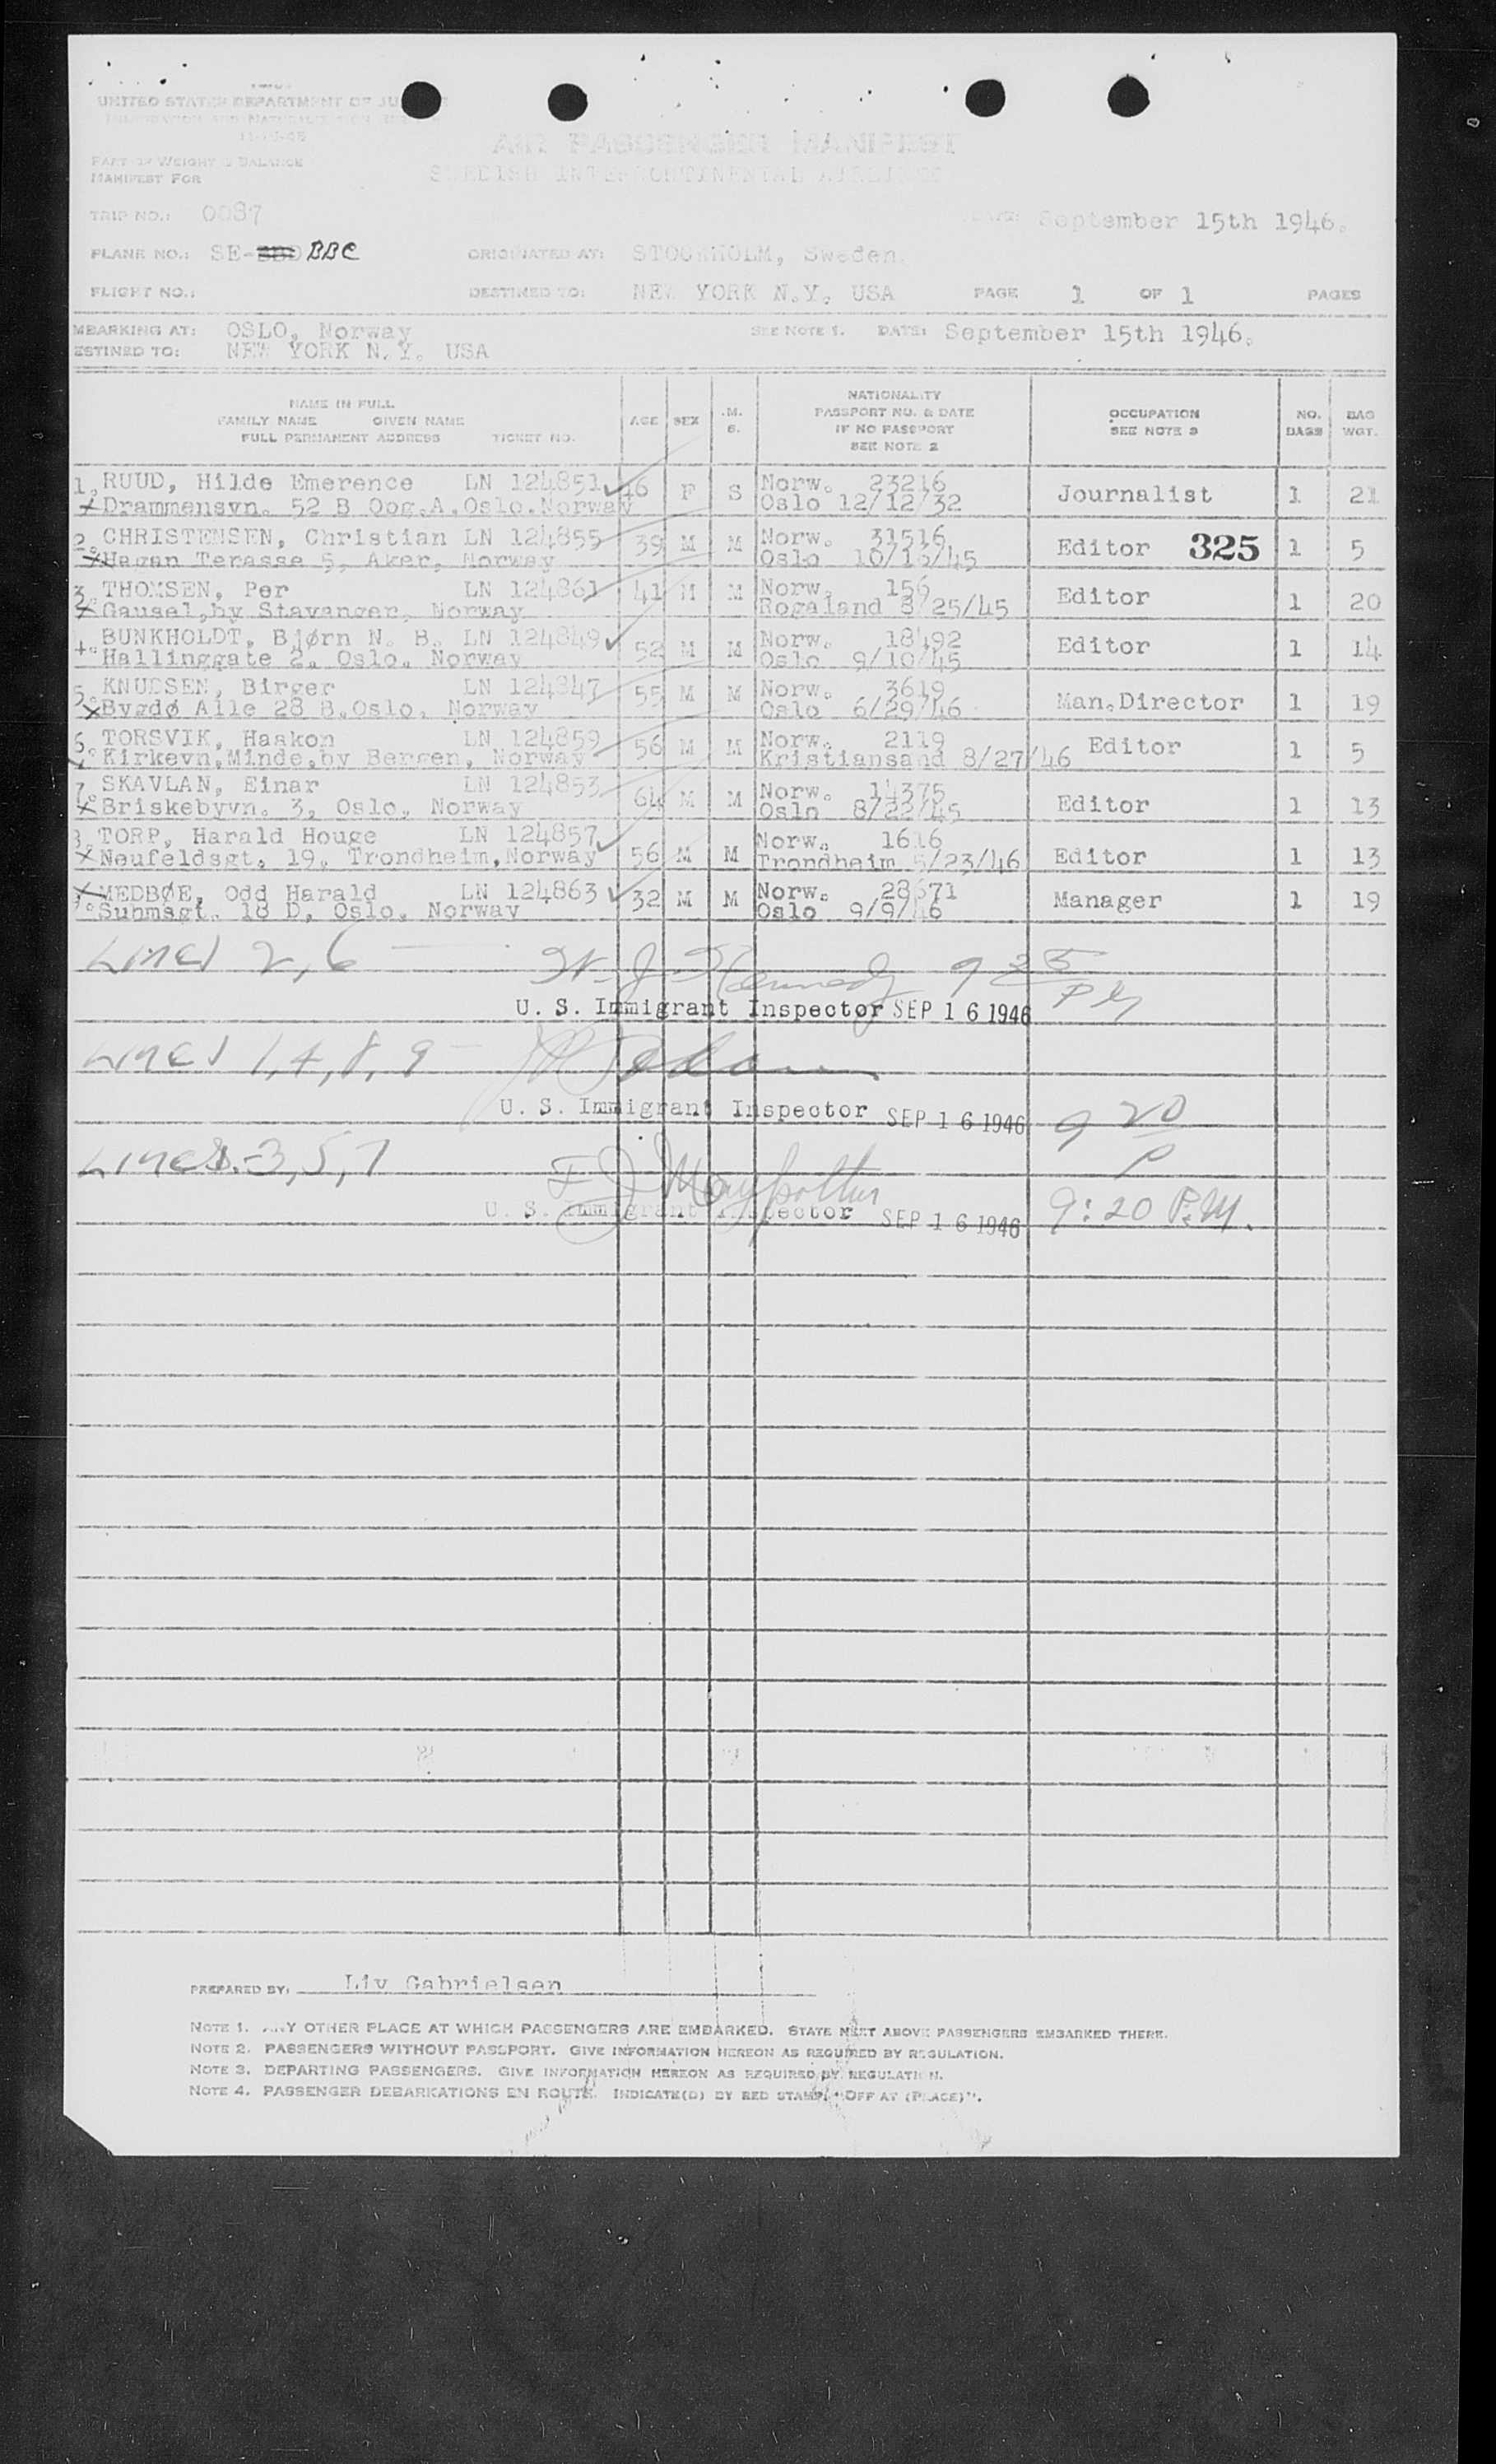 UNITED STATES DEPARTMENT OF JU
IMMIGRATION AND NATURALIZATION
AIR PASSENGER MANIFEST
PART OF WEIGHT & BALANCE
MANIFEST FOR
SWEDISH INTERCONTINENTAL AIRLINES
TRIP NO.: 0087
DATE: September 15th 1946.
PLANE NO.: SE- BBC ORIGINATED AT: STOCKHOLM, Sweden.
FLIGHT NO.: DESTINED TO: NEW YORK N.Y. USA PAGE 1 OF 1 PAGES
MBARKING AT: OSLO, Norway SEE NOTE 1. DATE: September 15th 1946.
ESTINED TO: NEW YORK N.Y. USA
NAME IN FULL
FAMILY NAME GIVEN NAME
FULL PERMANENT ADDRESS TICKET NO.
AGE SEX .M. S.
NATIONALITY
PASSPORT NO. & DATE
IF NO PASSPORT
SEE NOTE 2
OCCUPATION
SEE NOTE 3
NO. BAGS
BAG WGT.
1. RUUD, Hilde Emerence LN 124851 46 F S Norw. 23216 Journalist 1 21
Drammensvn. 52 B Opg.A.Oslo.Norway Oslo 12/12/32
2. CHRISTENSEN, Christian LN 124855 39 M M Norw. 31516 Editor 325 1 5
Hagan Terasse 5, Aker, Norway Oslo 10/16/45
3. THOMSEN, Per LN 124861 41 M M Norw. 156 Editor 1 20
Gausel,by Stavanger, Norway Rogaland 8/25/45
4. BUNKHOLDT, Bjørn N. B. LN 124849 52 M M Norw. 18492 Editor 1 14
Hallinggate 2. Oslo. Norway Oslo 9/10/45
5. KNUDSEN, Birger LN 124847 55 M M Norw. 3619 Man.Director 1 19
Bygdø Alle 28 B.Oslo. Norway Oslo 6/29/46
6. TORSVIK, Haakon LN 124859 56 M M Norw. 2119 Editor 1 5
Kirkevn,Minde,by Bergen, Norway Kristiansand 8/27/46
7. SKAVLAN, Einar LN 124853 64 M M Norw. 14375 Editor 1 13
Briskebyvn. 3, Oslo, Norway Oslo 8/22/45
8. TORP, Harald Houge LN 124857 56 M M Norw. 1616 Editor 1 13
Neufeldsgt. 19. Trondheim,Norway Trondheim 5/23/46
9. MEDBØE, Odd Harald LN 124863 32 M M Norw. 28671 Manager 1 19
Suhmsgt. 18 D, Oslo. Norway Oslo 9/9/46
Lines 2, 6 J Kennedy 9 25 PM
U. S. Immigrant Inspector SEP 16 1946
Lines 1, 4, 8, 9
U. S. Immigrant Inspector SEP 16 1946 9 20 P
Lines. 3, 5, 7
U. S. Immigrant Inspector SEP 16 1946 9:20 P.M.
PREPARED BY: Liv Gabrielsen
NOTE 1. ANY OTHER PLACE AT WHICH PASSENGERS ARE EMBARKED. STATE NEXT ABOVE PASSENGERS EMBARKED THERE.
NOTE 2. PASSENGERS WITHOUT PASSPORT. GIVE INFORMATION HEREON AS REQUIRED BY REGULATION.
NOTE 3. DEPARTING PASSENGERS. GIVE INFORMATION HEREON AS REQUIRED BY REGULATION.
NOTE 4. PASSENGER DEBARKATIONS EN ROUTE. INDICATE(D) BY RED STAMP: "OFF AT (PLACE)".